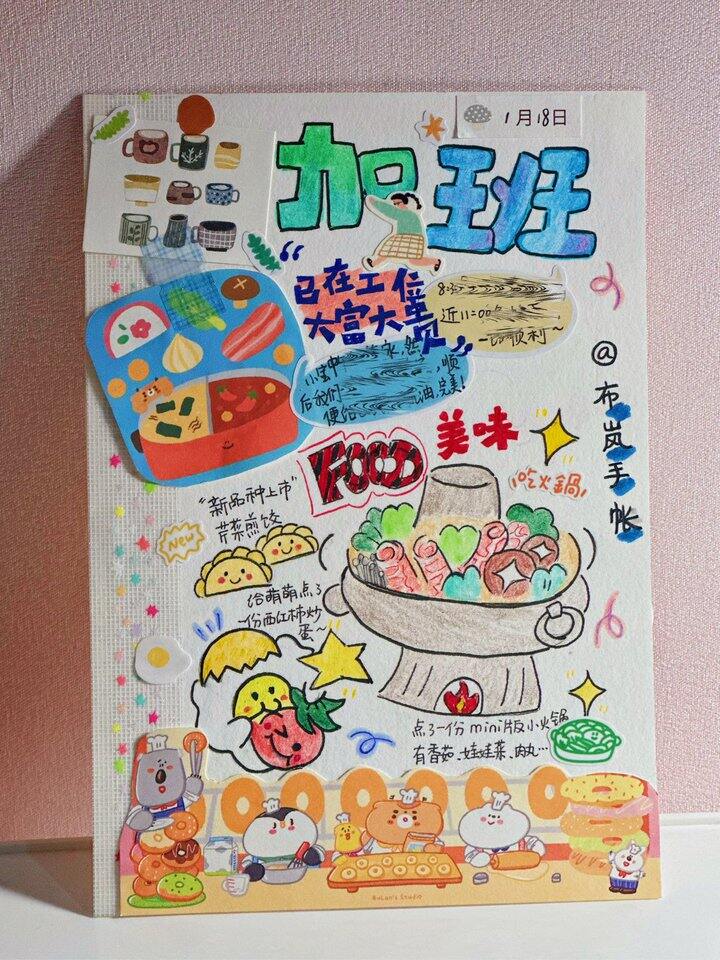 1月18日
加班
“已在工位
大富大贵”
8:3
近11:00
一切顺利~
小宝中 ,然
后我们 ,顺
便给 油,完美!
@布岚手帐
FOOD
美味
吃火鍋
“新品种上市”
芹菜煎饺
NEW
给萌萌点了
一份西红柿炒
蛋~
点了一份mini版小火锅
有香菇、娃娃菜、肉丸…
BuLan's Studio